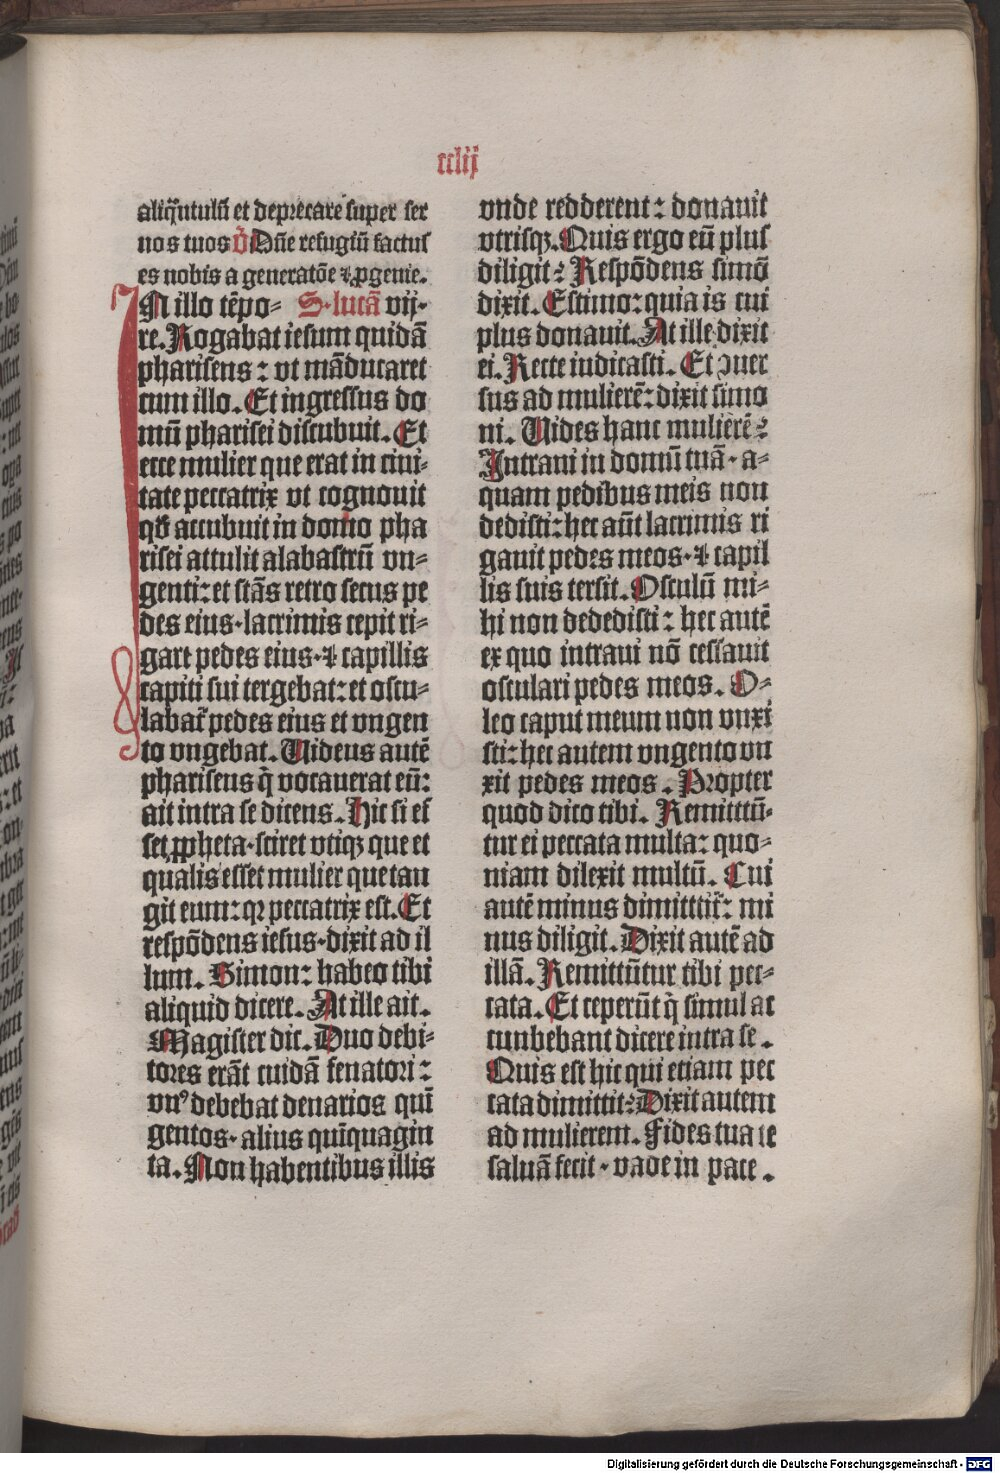 cclij
aliq̄ntulū et deprecare super ser
uos tuos v̄ Dn̄e refugiū factus
es nobis a generatōe ⁊ ꝓgenie.
IN illo tēpo⸗ S. lucā vij.
re. Rogabat iesum quidā
phariseus: vt māducaret
cum illo. Et ingressus do
mū pharisei discubuit. Et
ecce mulier que erat in ciui⸗
tate peccatrix vt cognouit
qđ accubuit in domo pha
risei attulit alabastrū vn⸗
genti: et stās retro secus pe
des eius. lacrimis cepit ri⸗
gare pedes eius. ⁊ capillis
capiti sui tergebat: et oscu⸗
labat̄ pedes eius et vngen
to vngebat. Uidens autē
phariseus q̄ vocauerat eū:
ait intra se dicens. Hic si es
set ꝓpheta. sciret vtiqꝫ que et
qualis esset mulier que tan
git eum: qꝛ peccatrix est. Et
respōdens iesus. dixit ad il
lum. Simon: habeo tibi
aliquid dicere. At ille ait.
Magister dic. Duo debi⸗
tores erāt cuidā fenatori:
vnꝰ debebat denarios quī
gentos. alius quīquagin
ta. Non habentibus illis
vnde redderent: donauit
vtrisqꝫ. Quis ergo eū plus
diligit? Respōdens simō
dixit. Estimo: quia is cui
plus donauit. At ille dixit
ei. Recte iudicasti. Et ꝯuer
sus ad mulierē: dixit simo
ni. Uides hanc mulierē?
Intraui in domū tuā. a⸗
quam pedibus meis non
dedisti: hec aūt lacrimis ri
gauit pedes meos. ⁊ capil
lis suis tersit. Osculū mi⸗
hi non dededisti: hec autē
ex quo intraui nō cessauit
osculari pedes meos. O⸗
leo caput meum non vnxi
sti: hec autem vngento vn
xit pedes meos. Propter
quod dico tibi. Remitttū⸗
tur ei peccata multa: quo⸗
niam dilexit multū. Cui
autē minus dimitttit̄: mi
nus diligit. Dixit autē ad
illā. Remittūtur tibi pec⸗
cata. Et ceperūt q̄ simul ac
cunbebant dicere intra se.
Quis est hic qui etiam pec
cata dimittit? Dixit autem
ad mulierem. Fides tua te
saluā fecit. vade in pace.
Digitalisierung gefördert durch die Deutsche Forschungsgemeinschaft - DFG